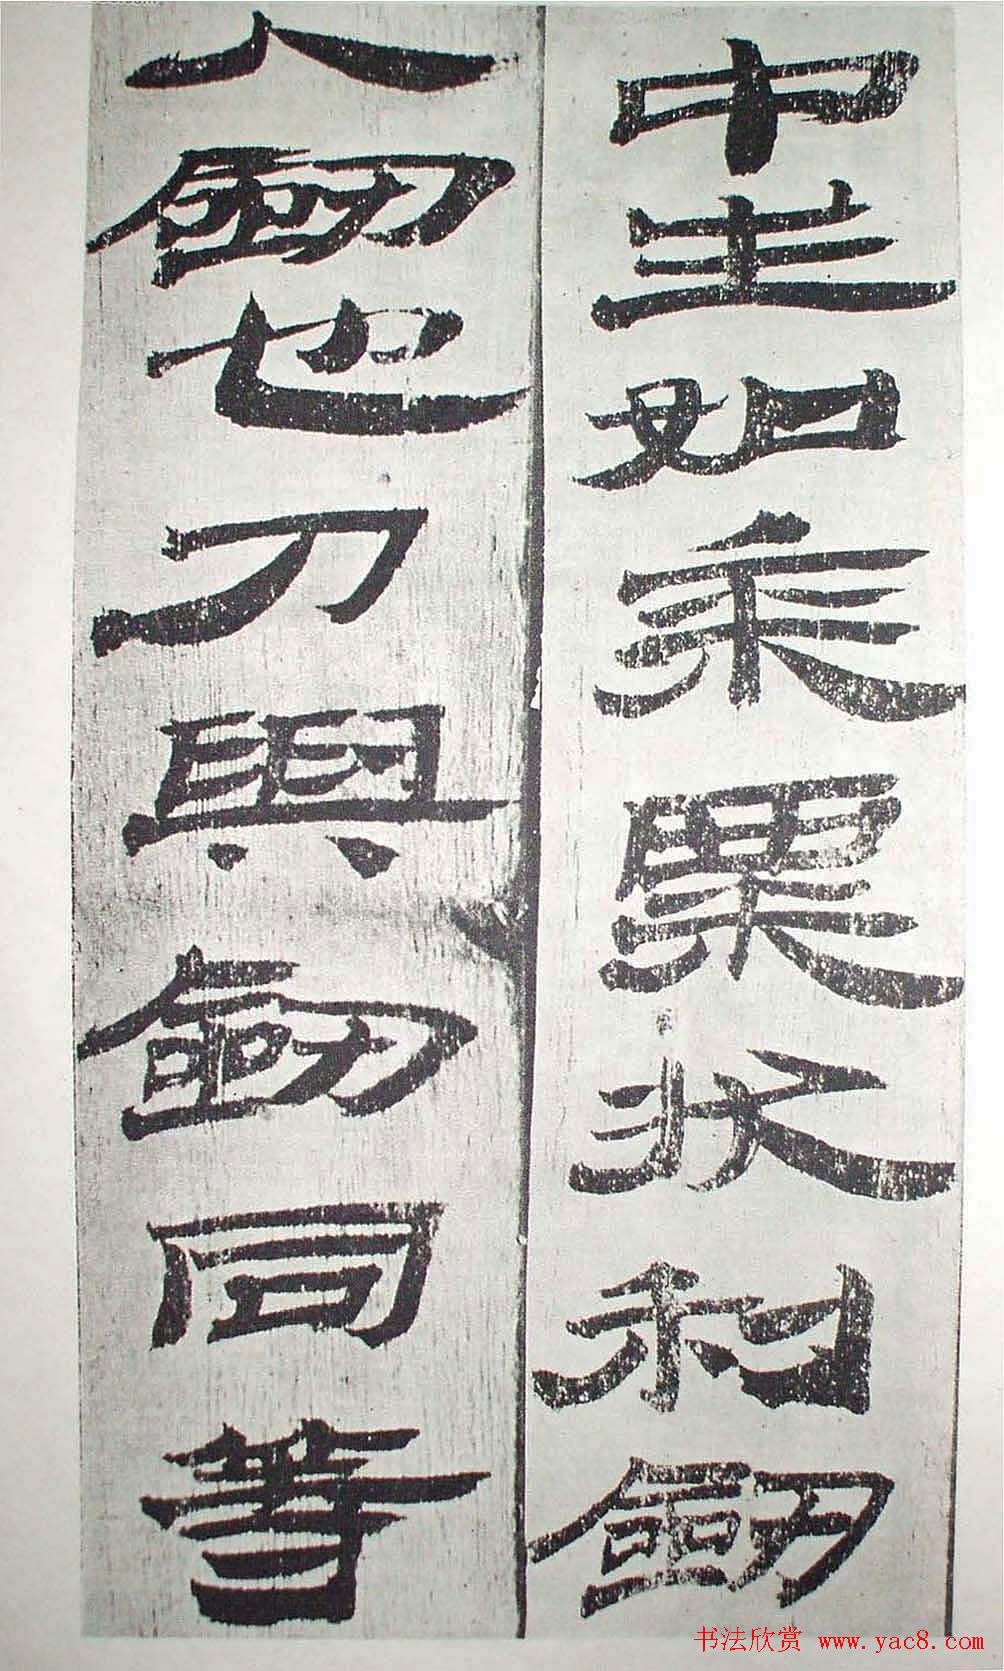 中生如黍粟狀利劒
人劒也刀與劒同等
书法欣赏 www.yac8.com